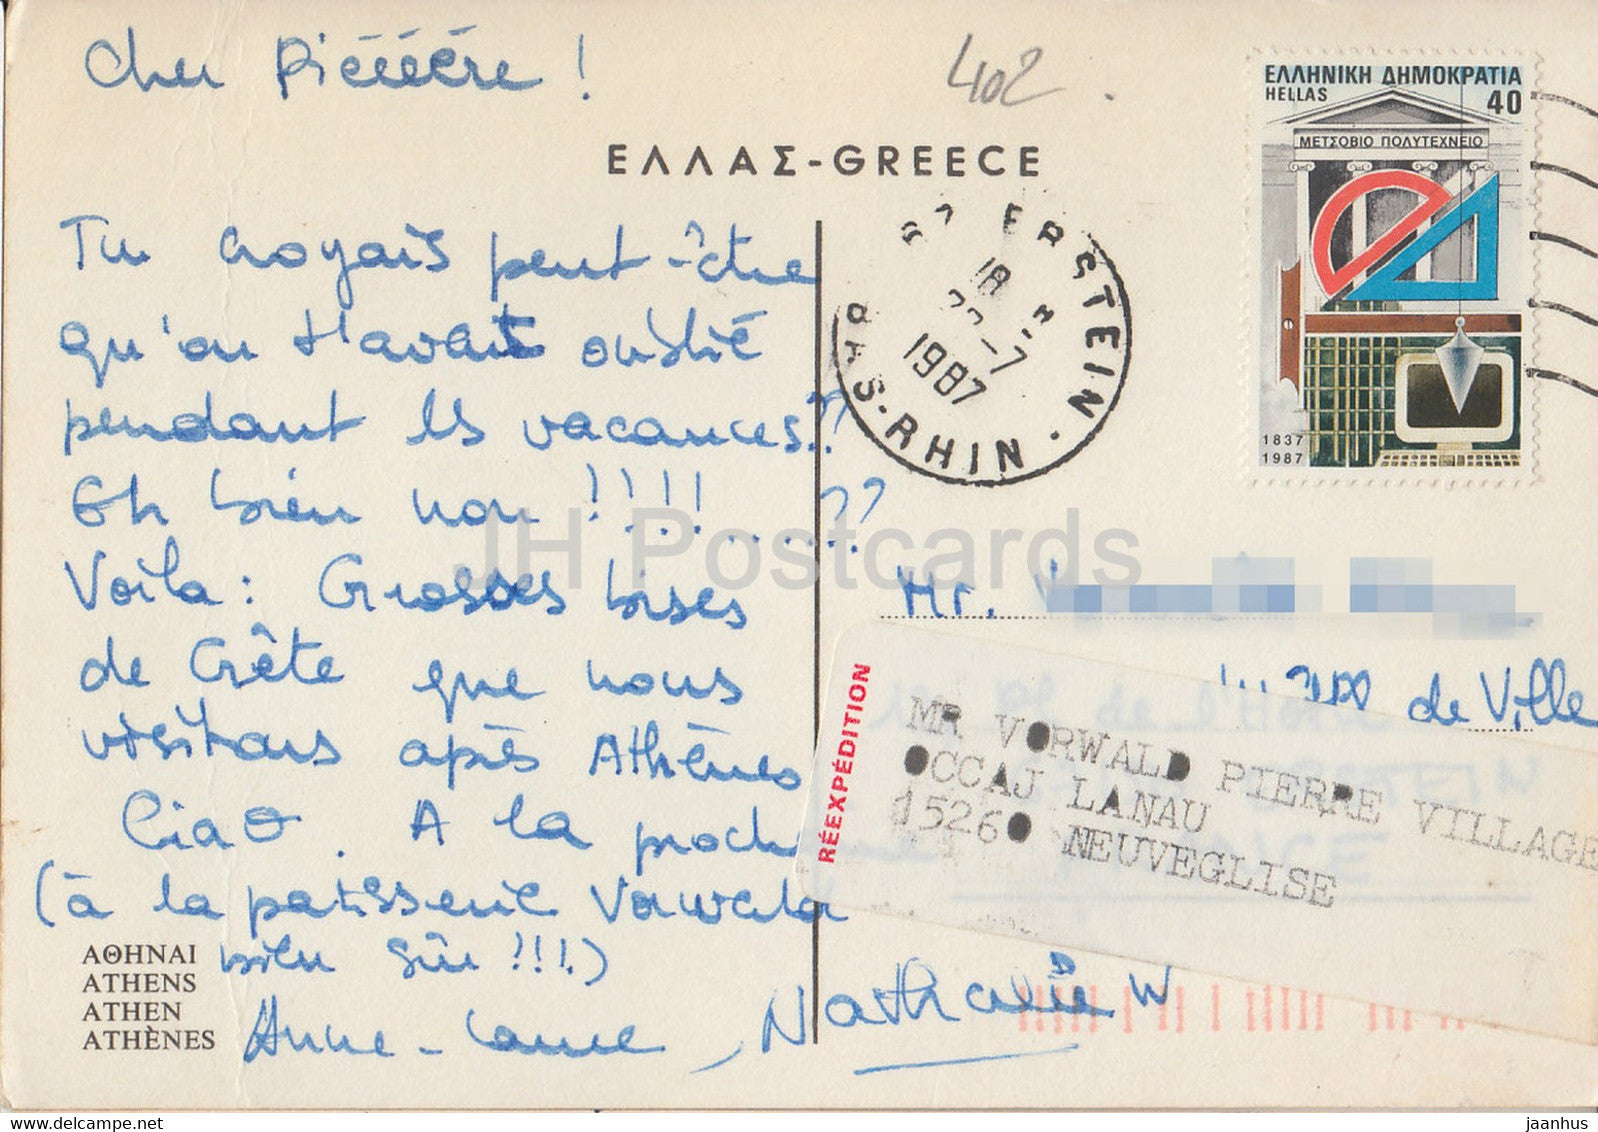 Cher Piéééére !
402 .
ΕΛΛΗΝΙΚΗ ΔΗΜΟΚΡΑΤΙΑ
HELLAS 40
ΜΕΤΣΟΒΙΟ ΠΟΛΥΤΕΧΝΕΙΟ
1837
1987
ΕΛΛΑΣ-GREECE
Tu croyais peut-être
qu'on t'avait oublié
pendant les vacances??
Eh bien non !!!!....??
Voila : Grosses bises
de Crête que nous
visitons après Athènes
Ciao . A la proch
(à la patisserie Vorwald
bien sûr !!!.)
Anne-Laure, Nathalie W
ERSTEIN
18
22-7
1987
BAS-RHIN
Mr.
de Ville
RÉEXPÉDITION
MR VORWALD PIERRE VILLAGE
OCCAJ LANAU
15260 NEUVEGLISE
ΑΘΗΝΑΙ
ATHENS
ATHEN
ATHÈNES
JH Postcards
delcampe.net
jaanhus